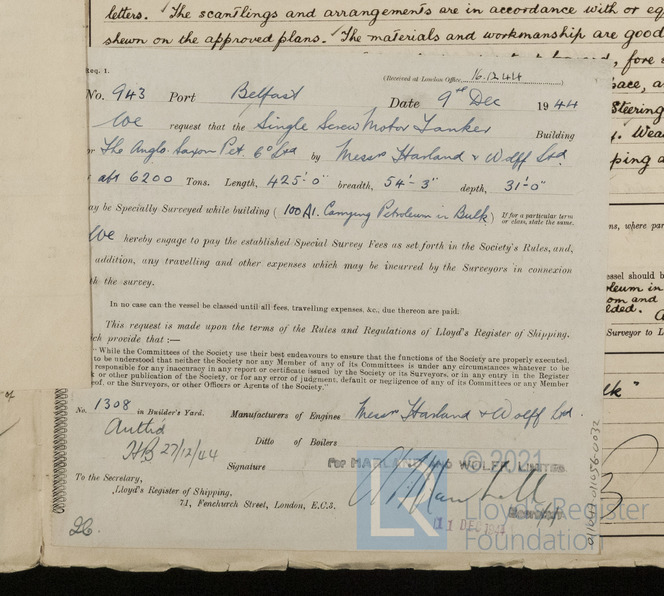 letters. The scantlings and arrangements are in accordance with or eq
shewn on the approved plans. The materials and workmanship are good
, fore
pace,
Steering
. Wea
ping a
Req. 1.
(Received at London Office, 16.12.44)
No. 943 Port Belfast Date 9th Dec 1944
We request that the Single Screw Motor Tanker Building
or The Anglo Saxon Pet. Co Ltd by Messrs Harland & Wolff Ltd.
abt 6200 Tons. Length, 425'-0" breadth, 54'-3" depth, 31'-0"
ay be Specially Surveyed while building (100A1. Carrying Petroleum in Bulk) If for a particular term or class, state the same.
We hereby engage to pay the established Special Survey Fees as set forth in the Society's Rules, and,
addition, any travelling and other expenses which may be incurred by the Surveyors in connexion
th the survey.
In no case can the vessel be classed until all fees, travelling expenses, &c., due thereon are paid.
This request is made upon the terms of the Rules and Regulations of Lloyd's Register of Shipping,
ch provide that :—
"While the Committees of the Society use their best endeavours to ensure that the functions of the Society are properly executed,
to be understood that neither the Society nor any Member of any of its Committees is under any circumstances whatever to be
responsible for any inaccuracy in any report or certificate issued by the Society or its Surveyors, or in any entry in the Register
or other publication of the Society, or for any error of judgment, default or negligence of any of its Committees or any Member
of, or the Surveyors, or other Officers or Agents of the Society."
No. 1308 in Builder's Yard. Manufacturers of Engines Messrs Harland & Wolff Ltd.
Ditto of Boilers
Authd
HB 27/12/44
Signature
For HARLAND AND WOLFF, LIMITED
To the Secretary,
Lloyd's Register of Shipping,
71, Fenchurch Street, London, E.C.3.
26
ns, where par
essel should b
leum in
om and
lded.
Surveyor to L
lk"
© 2021
LR
Lloyd's Register
Foundation